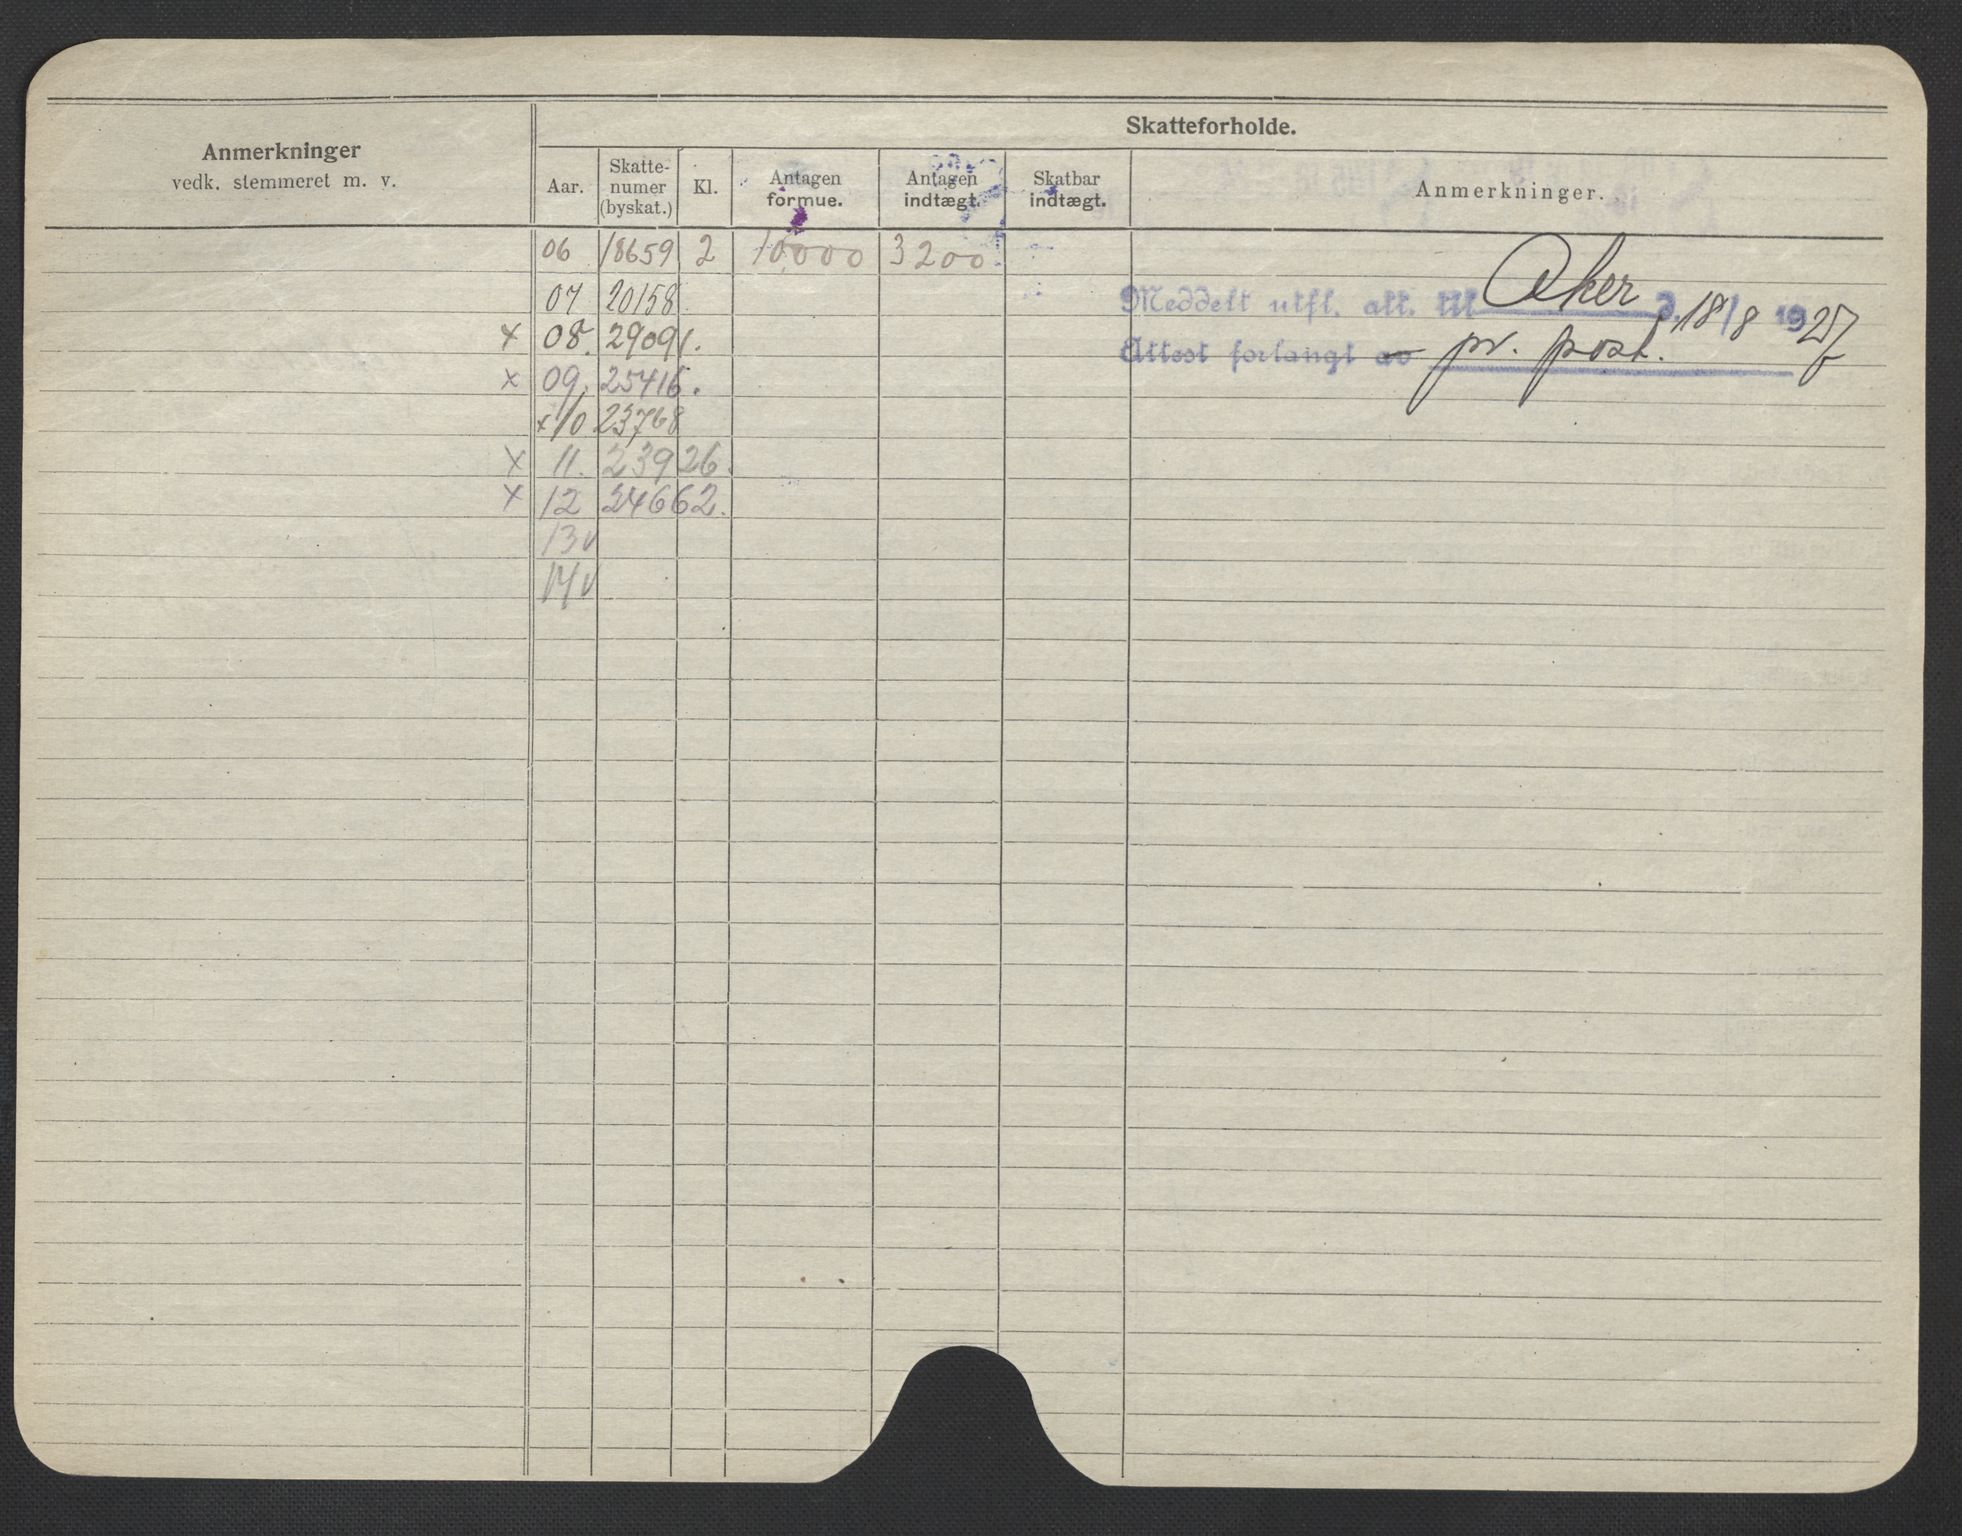 Skatteforholde.
Anmerkninger
vedk. stemmeret m. v.
Aar. Skatte-numer (byskat.) Kl. Antagen formue. Antagen indtægt. Skatbar indtægt. Anmerkninger.
06 18659 2 10000 3200
07 20158
x 08. 29091.
x 09. 25416.
x 10 23768
x 11. 23926.
x 12 24662.
13 v
14 v
Meddelt utfl. att. til Aker d. 18/8 1925
Attest forlangt av pr. post.